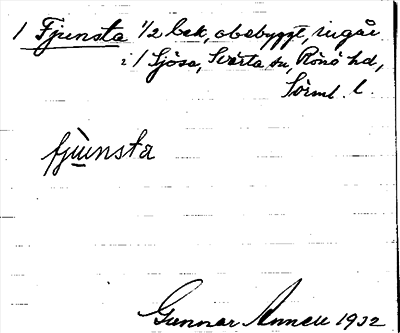 1 Fjunsta 1/2 bek, obebyggt, ingår
i 1 Sjösa, Svärta sn, Rönö hd,
Sörml. l.
fjunsta
Gunnar Annell 1932